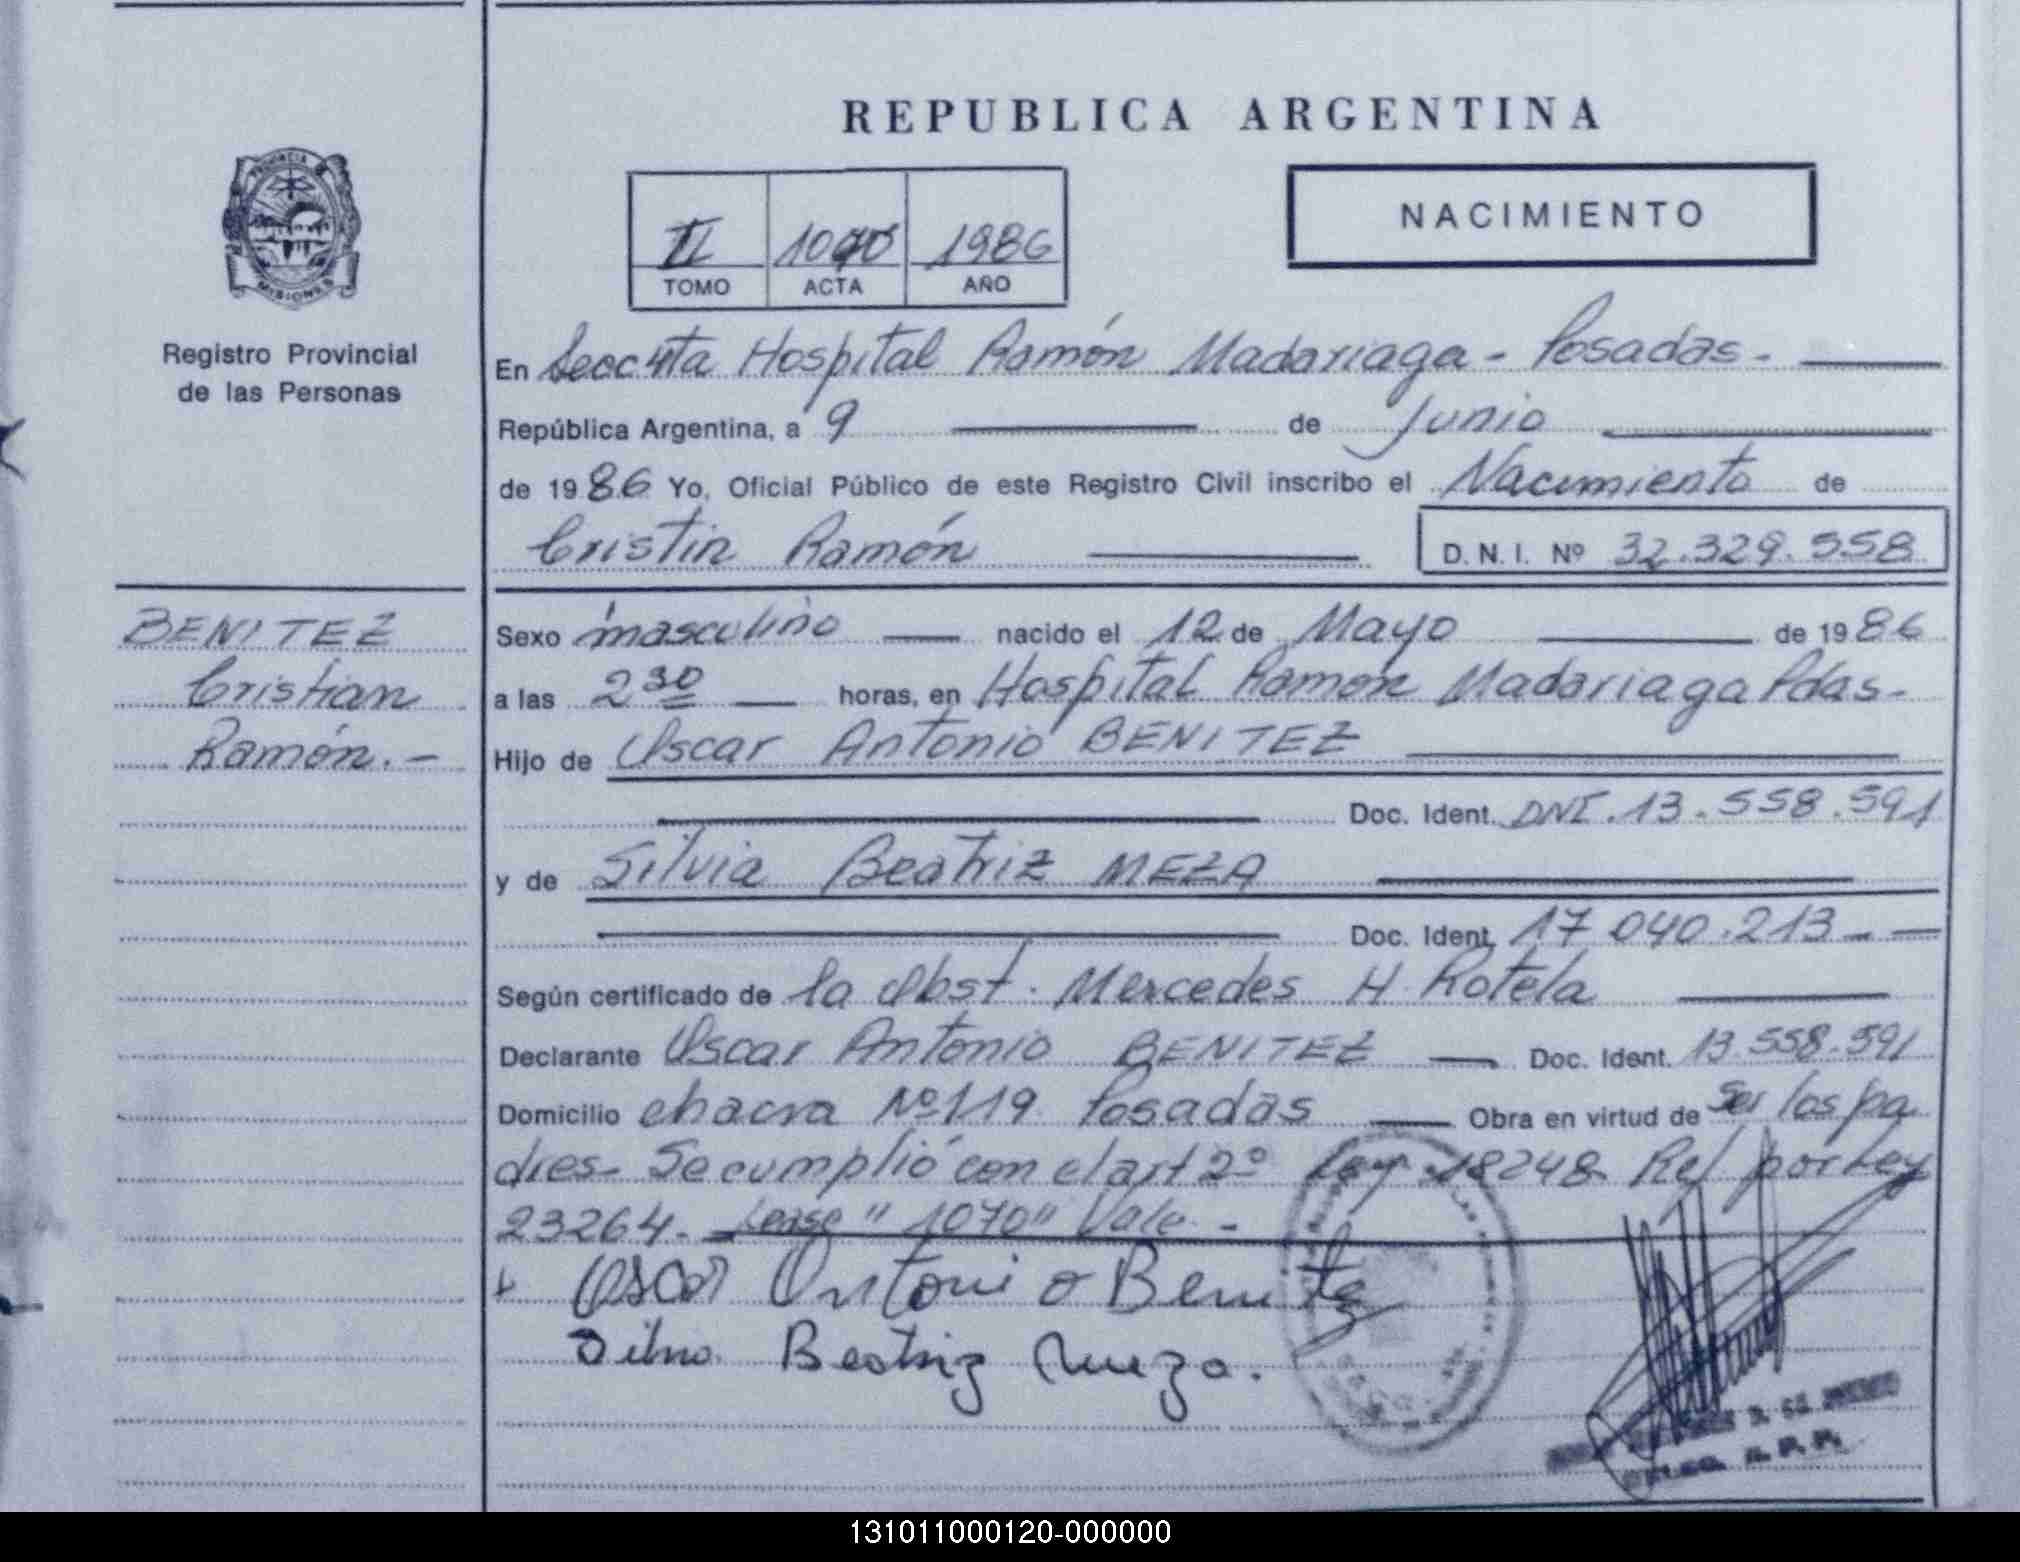 REPUBLICA ARGENTINA
PROVINCIA DE
MISIONES
Registro Provincial
de las Personas
II 1986
TOMO ACTA AÑO
NACIMIENTO
En Secc 4ta Hospital Ramón Madariaga - Posadas.
República Argentina, a 9 de Junio
de 1986 Yo, Oficial Público de este Registro Civil inscribo el Nacimiento de
Cristin Ramón D.N.I. Nº 32.329.558
BENITEZ
Cristian
Ramón.-
Sexo masculino nacido el 12 de Mayo de 1986
a las 2 30 horas, en Hospital Ramón Madariaga Pdas-
Hijo de Oscar Antonio BENITEZ
Doc. Ident. DNI. 13.558.591
y de Silvia Beatriz MEZA
Doc. Ident. 17 040.213
Según certificado de la Obst. Mercedes H. Rotela
Declarante Oscar Antonio BENITEZ Doc. Ident. 13.558.591
Domicilio chacra Nº 119 Posadas Obra en virtud de Ser los pa
dres- Se cumplió con el art 2º Ley 18248 Ref por Ley
23264. Lease "1070" Vale -
Oscar Antonio Benitez
Silvia Beatriz Meza.
131011000120-000000